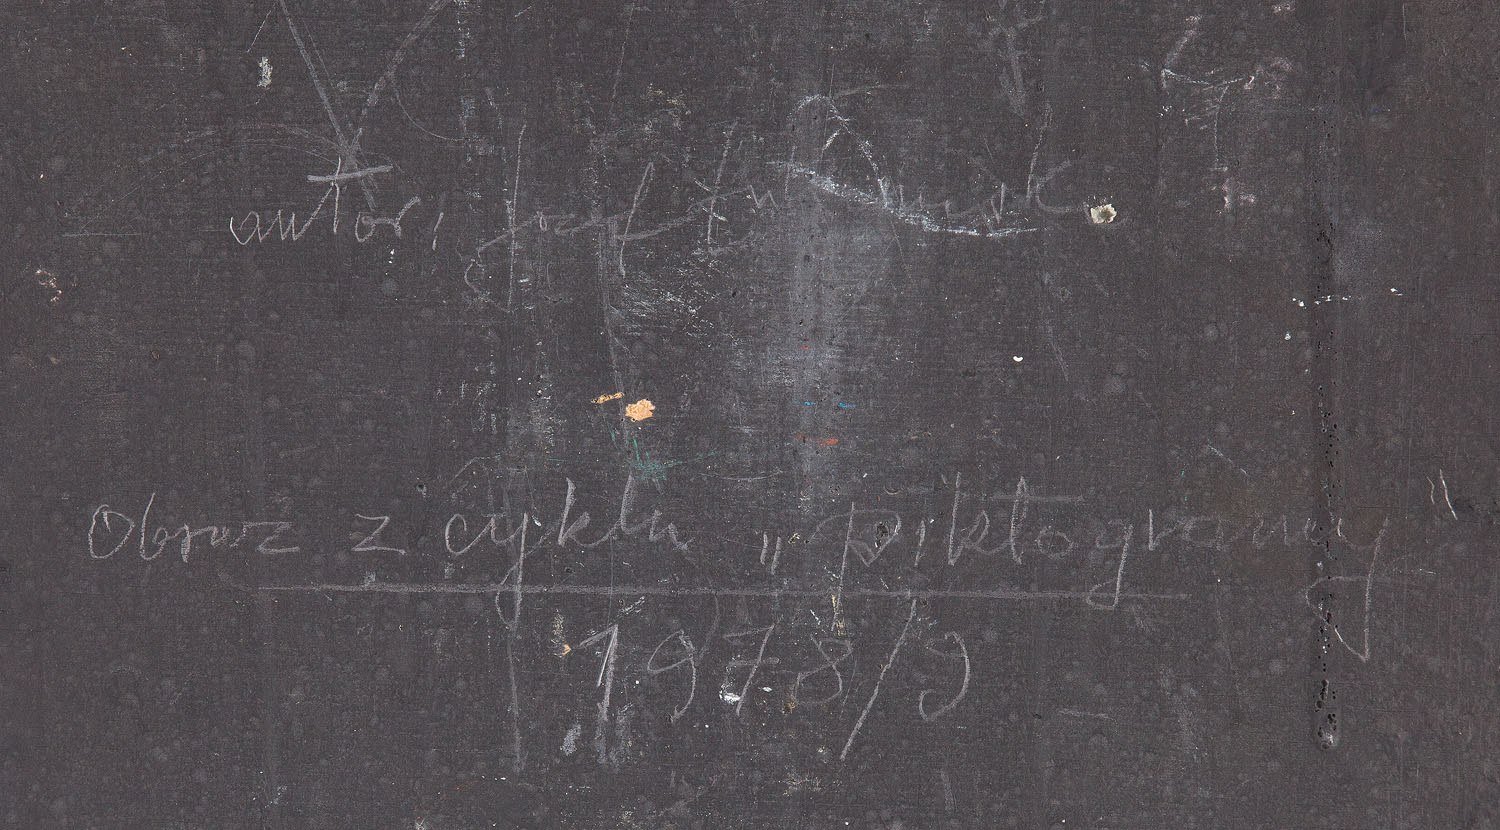 autor: Józef
Obraz z cyklu „piktogramy
1978/9